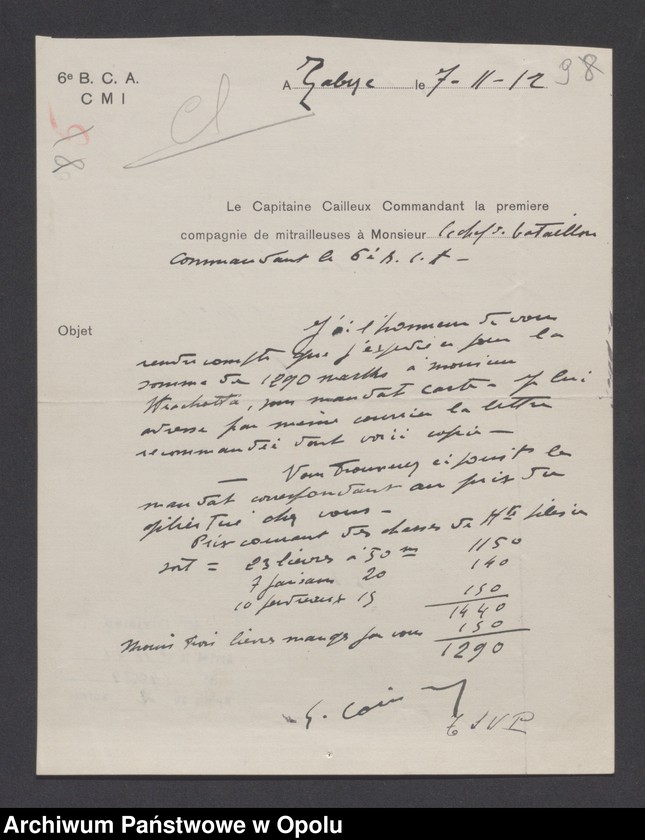 6e B. C. A.
C M I
A Zabrze le 7-11-12
98
Le Capitaine Cailleux Commandant la premiere
compagnie de mitrailleuses à Monsieur le chef de bataillon
Commandant le 6e B. C. A -
Objet
J'ai l'honneur de vous
rendre compte que j'expédie pour la
somme de 1290 marks à monsieur
Wrachotta, un mandat carte - Je lui
adresse par même courrier la lettre
recommandée dont voici copie -
Vous trouverez ci joint le
mandat correspondant au prix du
gibier tué chez vous -
Prix courant des chasses de Hte Silésie
soit = 23 lièvres à 50 m 1150
7 faisans 20 140
10 perdreaux 15 150
1440
Moins trois lièvres mangés par vous 150
1290
T S V P
Archiwum Państwowe w Opolu